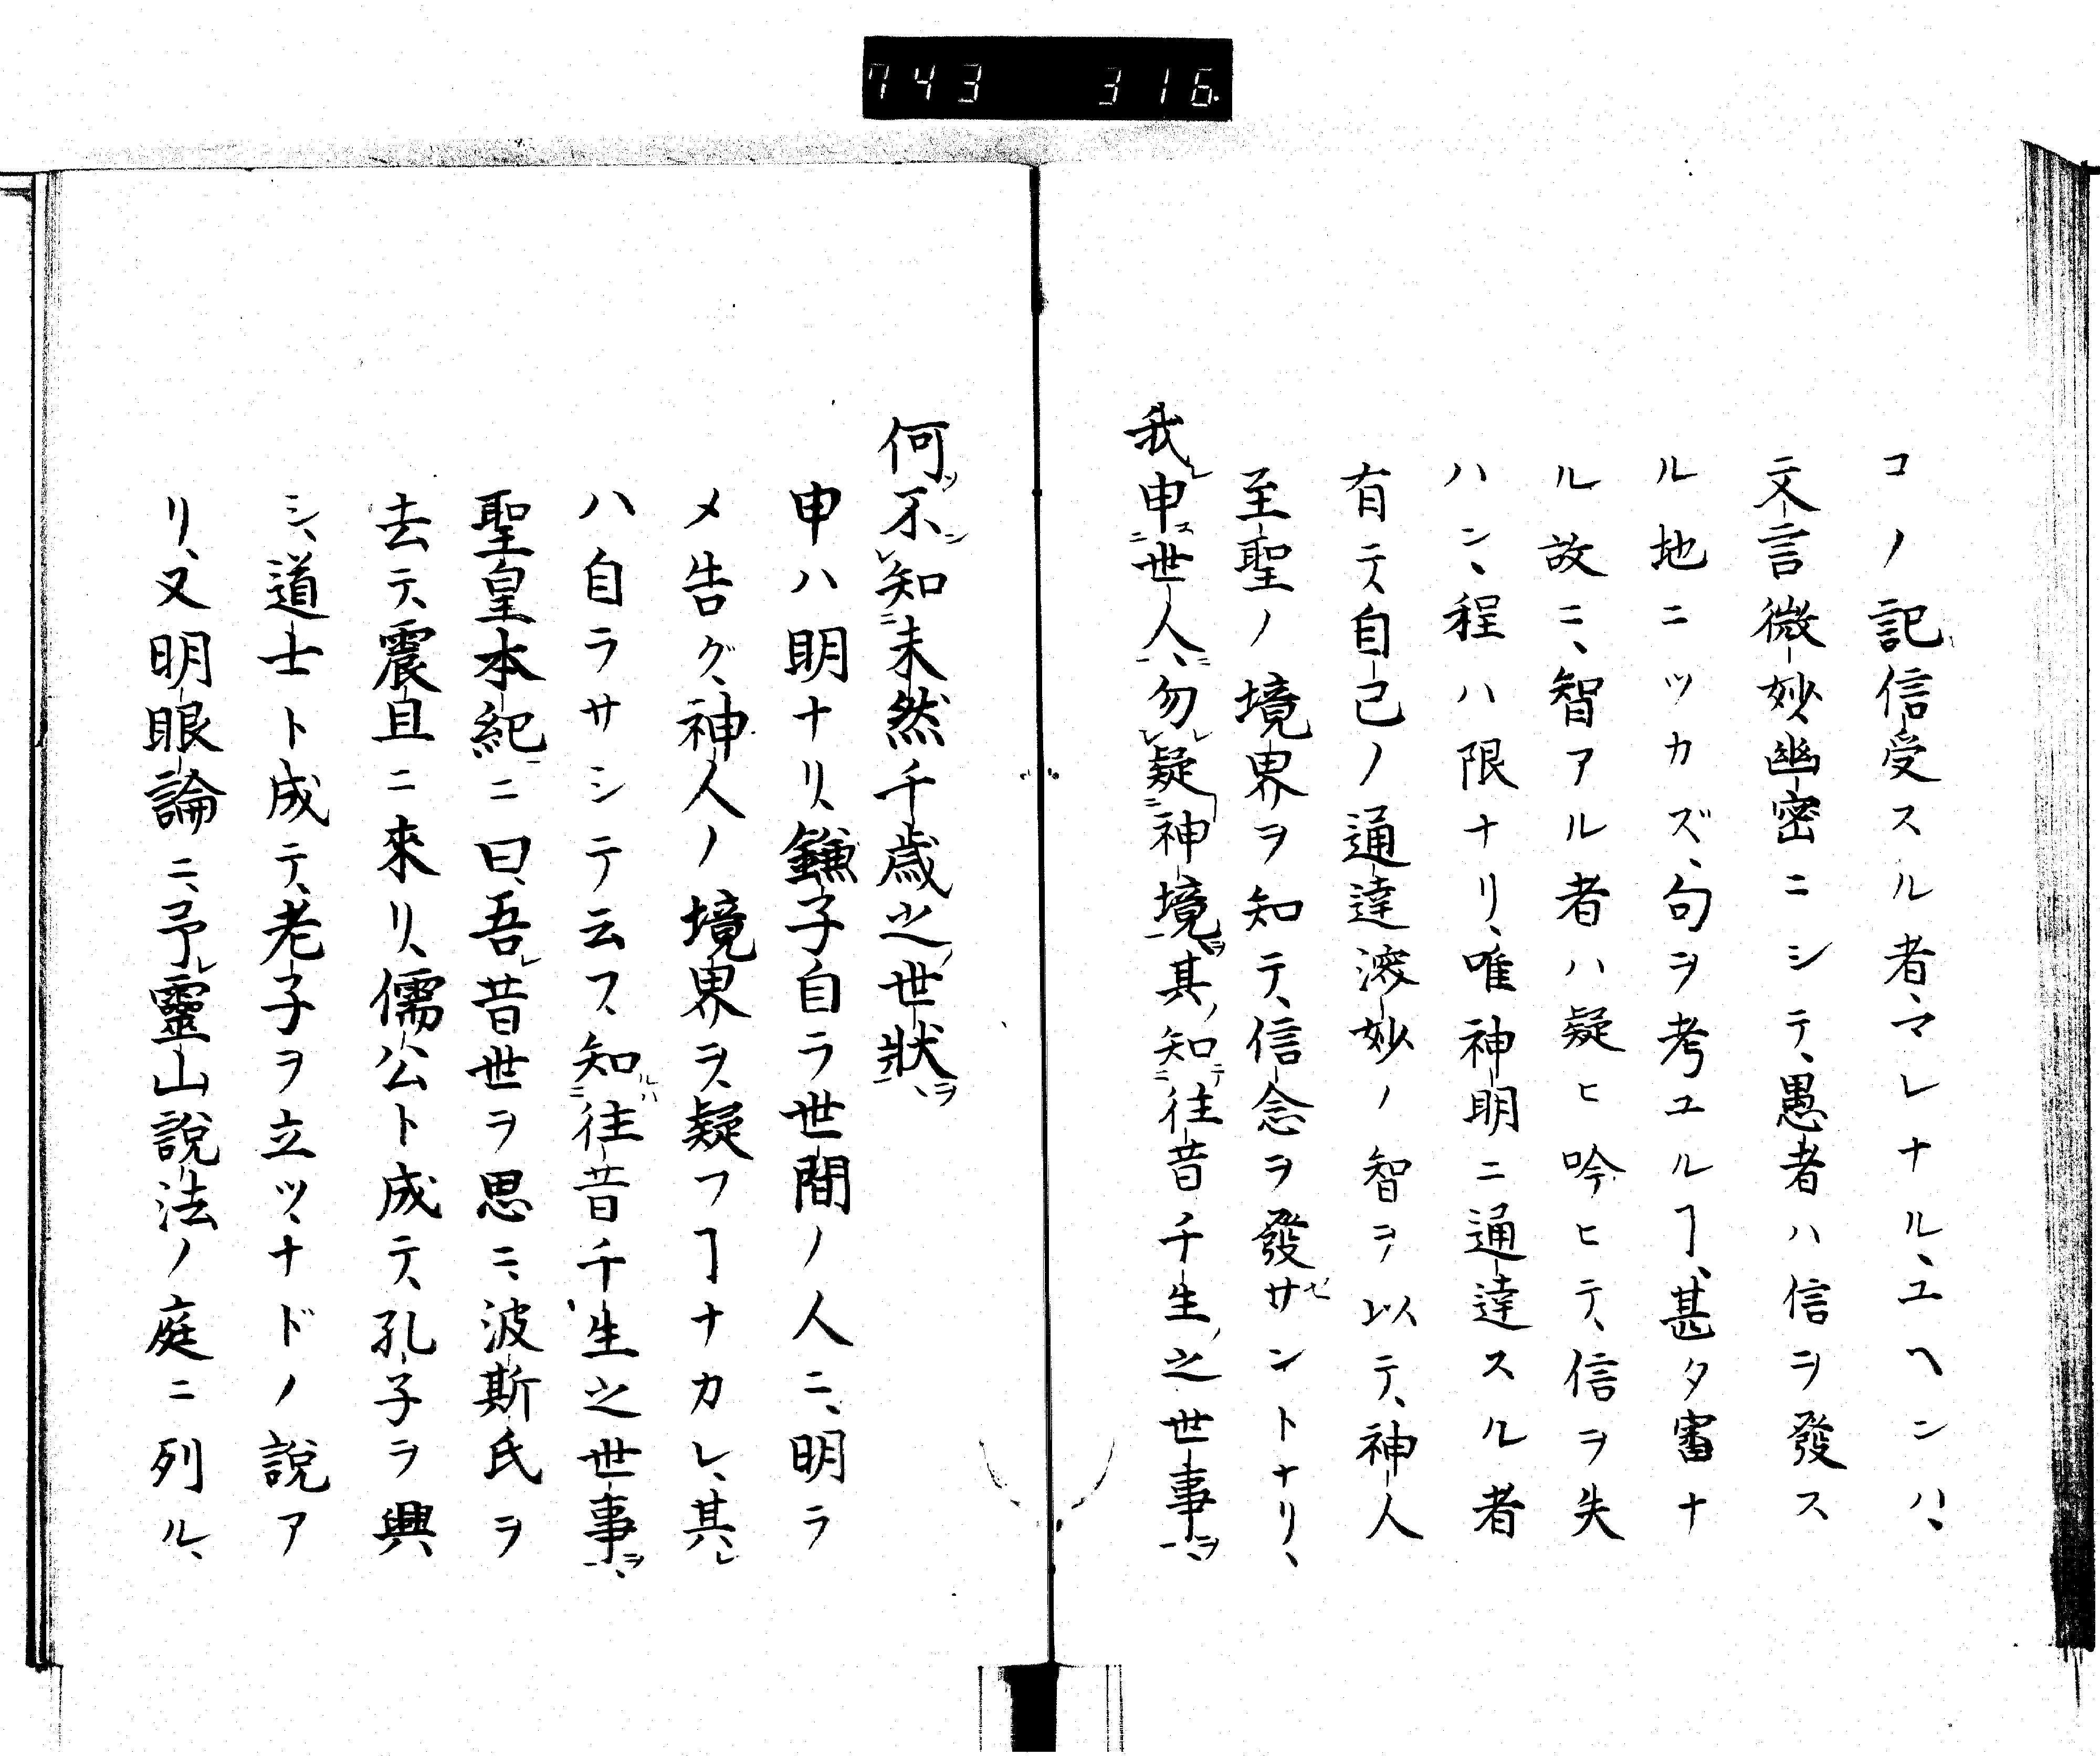 743 316.
コノ記信受スル者、マレナル、ユヘンハ、
文言微妙幽密ニシテ、愚者ハ信ヲ發ス
ル地ニツカズ、句ヲ考ユルヿ、甚タ審ナ
ル故ニ、智アル者ハ疑ヒ吟ヒテ、信ヲ失
ハン、程ハ限ナリ、唯神明ニ通達スル者
有テ、自己ノ通達深妙ノ智ヲ以テ、神人
至聖ノ境界ヲ知テ、信念ヲ發サセントナリ、
我レ申ス二世人一ニ、勿レ疑二神境一ヲ其ノ知テ二往昔千生ノ之世事一ヲ、
何ソ不ン レ知二未然千歳之ノ世狀一ヲ、
申ハ明ナリ、鎌子自ラ世間ノ人ニ、明ラ
メ告グ、神人ノ境界ヲ、疑フヿナカレ、其レ
ハ自ラサシテ云フ、知ルハ二往昔千生之世事一ヲ、
聖皇本紀ニ曰、吾レ昔世ヲ思ニ、波斯氏ヲ
去テ、震旦ニ來リ、儒公ト成テ、孔子ヲ興
シ、道士ト成テ、老子ヲ立ツ、ナドノ說ア
リ、又明眼論ニ、予レ靈山說法ノ庭ニ列ル、